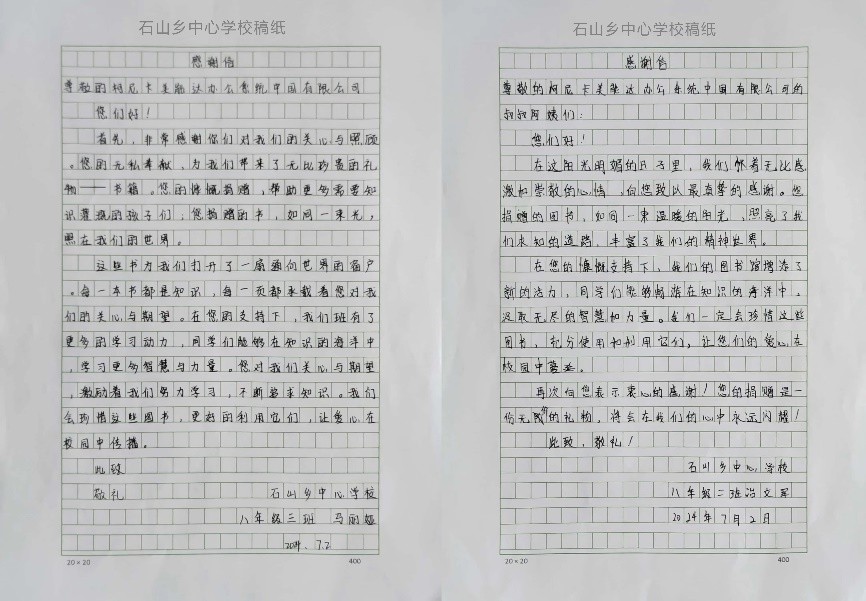 石山乡中心学校稿纸
感谢信
尊敬的柯尼卡美能达办公系统中国有限公司
您们好！
首先，非常感谢您们对我们的关心与照顾
。您的无私奉献，为我们带来了无比珍贵的礼
物——书籍。您的慷慨捐赠，帮助更多需要知
识灌溉的孩子们，您捐赠的书，如同一束光，
照在我们的世界。
这些书为我们打开了一扇通向世界的窗户
。每一本书都是知识，每一页都承载着您对我
们的关心与期望。在您的支持下，我们班有了
更多的学习动力，同学们能够在知识的海洋中
，学习更多智慧与力量。您对我们关心与期望
，激励着我们努力学习，不断追求知识。我们
会珍惜这些图书，更好的利用它们，让爱心在
校园中传播。
此致
敬礼 石山乡中心学校
八年级三班 马丽娅
2024.7.2
20×20 400
石山乡中心学校稿纸
感谢信
尊敬的柯尼卡美能达办公系统中国有限公司的
叔叔阿姨们：
您们好！
在这阳光明媚的日子里，我们怀着无比感
激和崇敬的心情，向您致以最真挚的感谢。您
捐赠的图书，如同一束温暖的阳光，照亮了我
们求知的道路，丰富了我们的精神世界。
在您的慷慨支持下，我们的图书馆增添了
新的活力，同学们能够畅游在知识的海洋中，
汲取无尽的智慧和力量。我们一定会珍惜这些
图书，充分使用和利用它们，让您们的爱心在
校园中蔓延。
再次向您表示衷心的感谢！您的捐赠是一
份无价的礼物，将会在我们的心中永远闪耀！
此致，敬礼！
石山乡中心学校
八年级二班冶文军
2024年7月2日
20×20 400